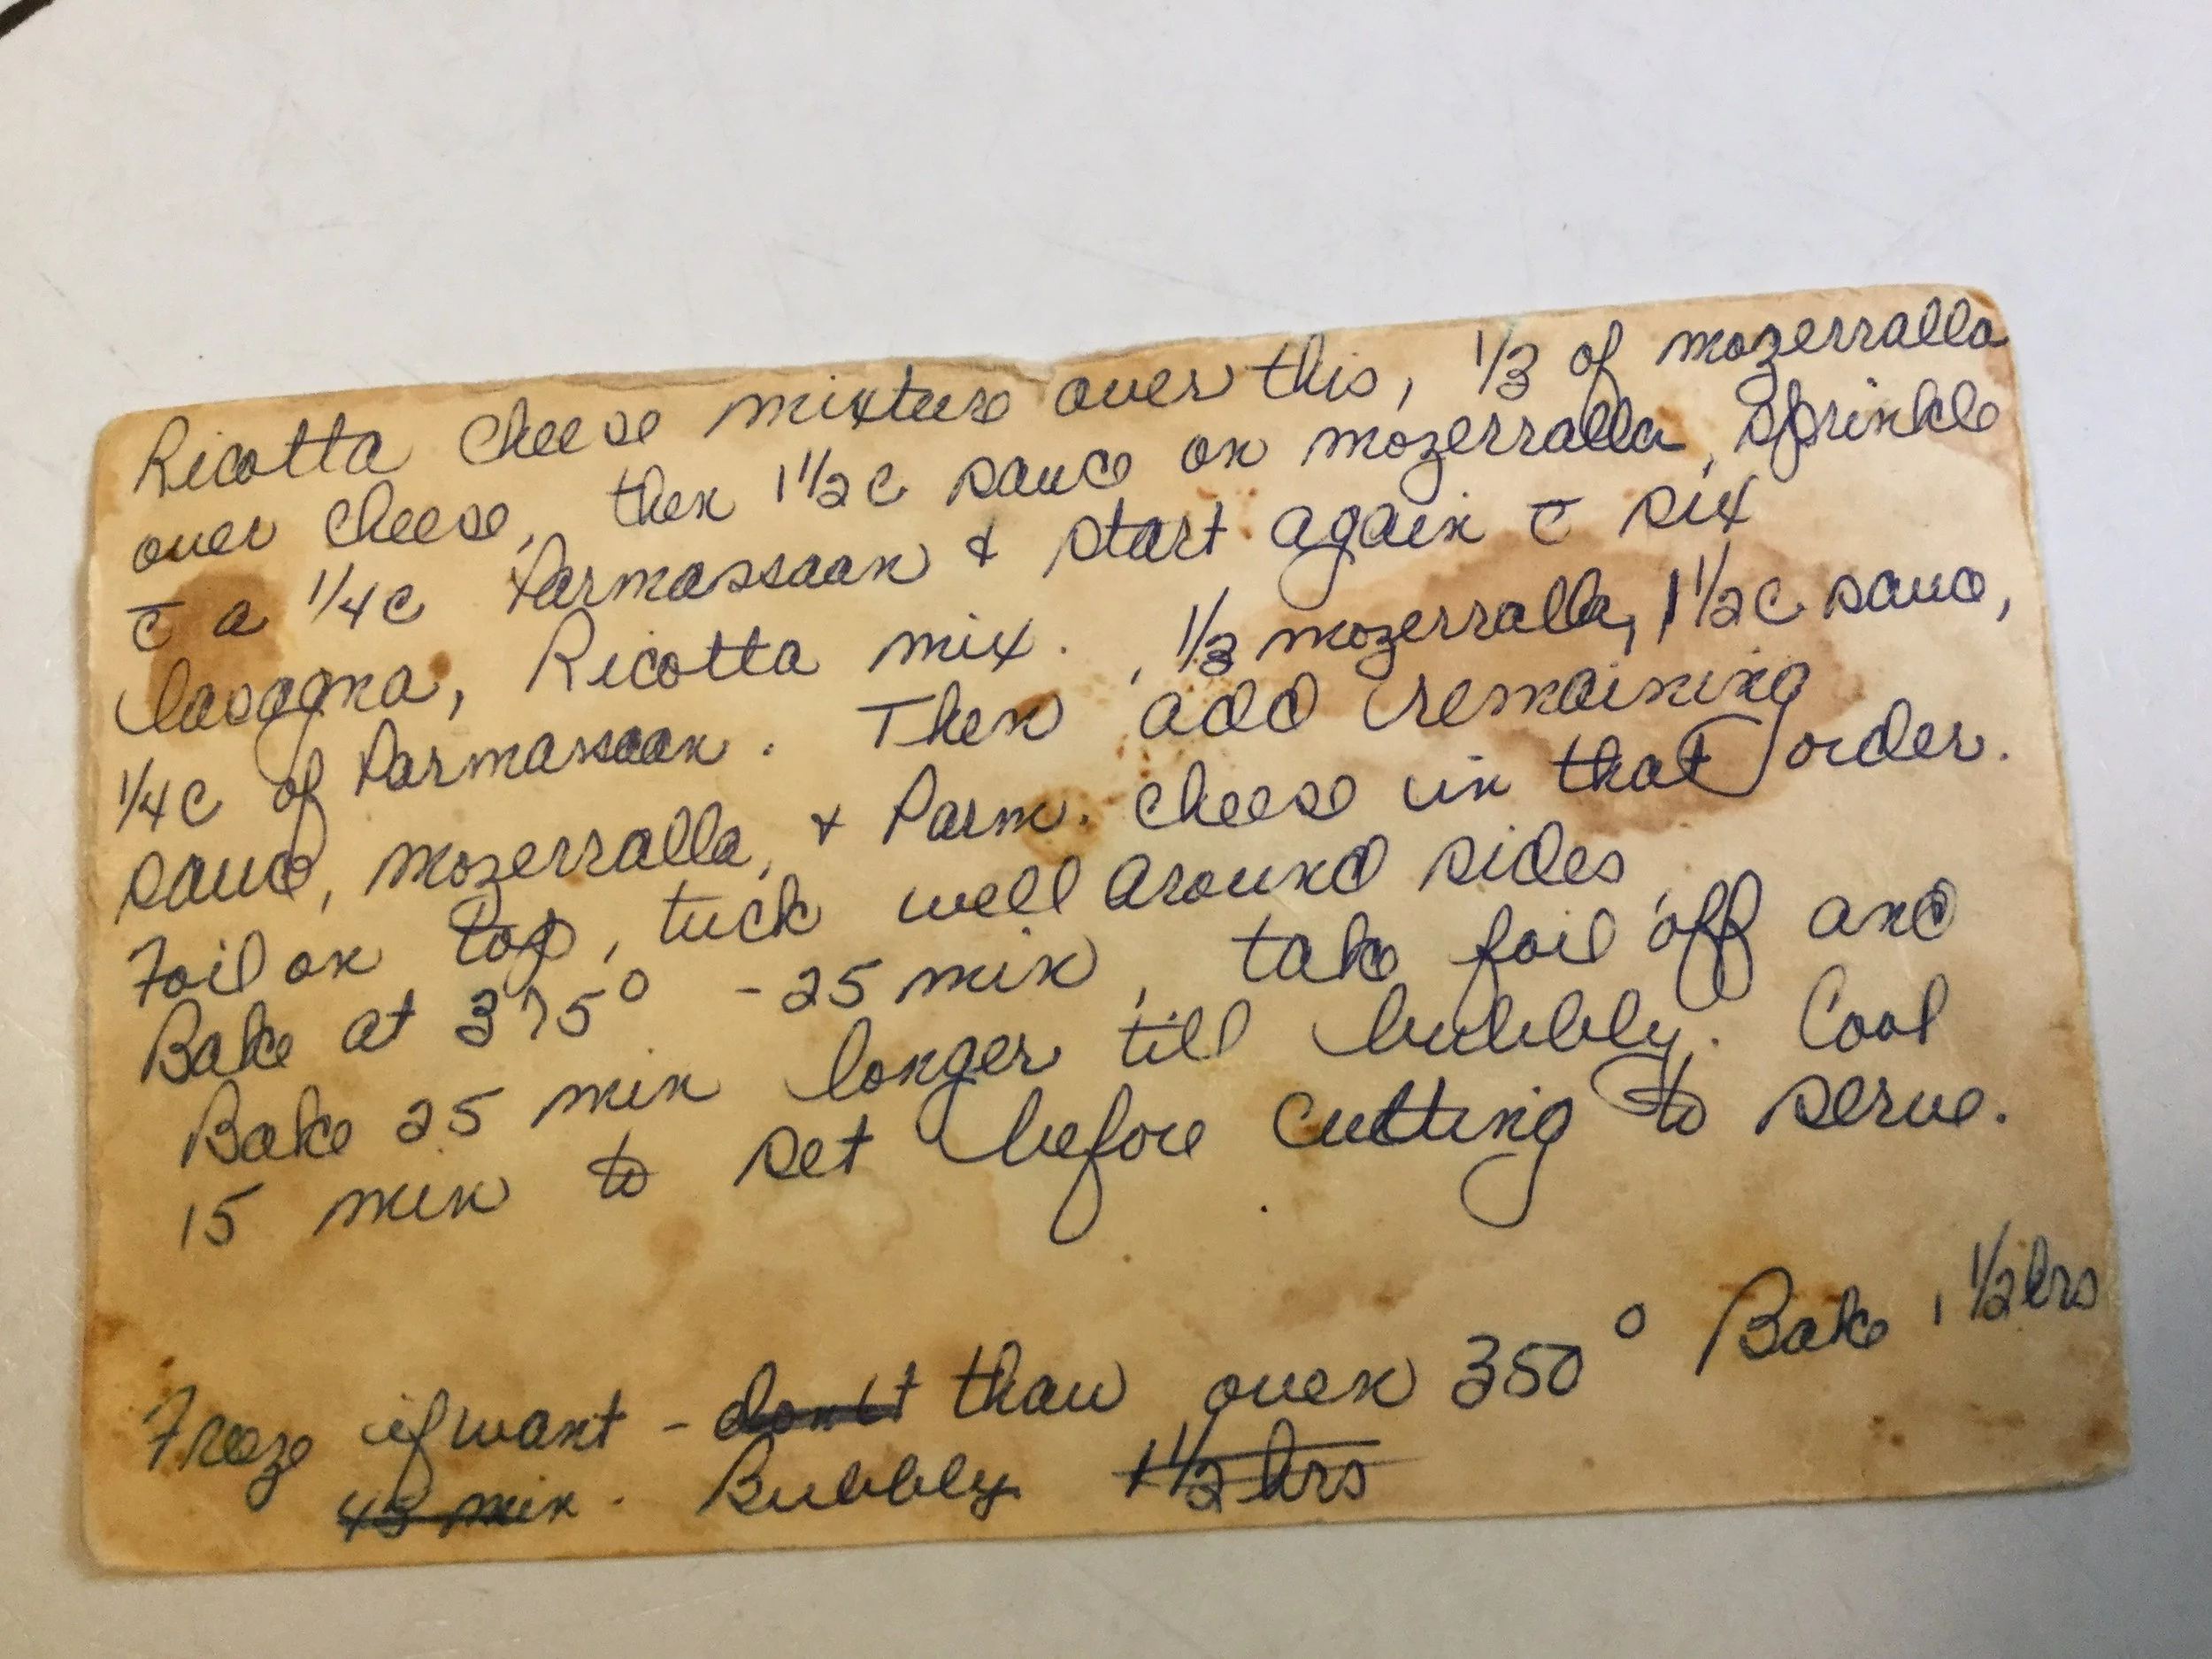 Ricotta Cheese mixture over this, 1/3 of mozerralla
over cheese, then 1 1/2 c sauce on mozerralla, Sprinkle
c̄ a 1/4 c Parmassaan & start again c̄ six
lasagna, Ricotta mix. , 1/3 mozerralla, 1 1/2 c sauce,
1/4 c of Parmassaan. Then add remaining
sauce, mozerralla, & Parm. cheese in that order.
Foil on top, tuck well around sides
Bake at 375° - 25 min, take foil off and
Bake 25 min longer till bubbly. Cool
15 min to set before cutting to serve.
Freeze if want - don't thaw oven 350° Bake 1 1/2 hrs
45 min. Bubbly 1 1/2 hrs